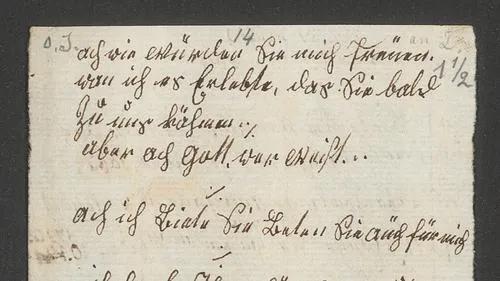 o. J. (14
1 1/2
ach wie würden Sie mich freuen.
wan ich es Erlebte, das Sie bald
Zu uns kähmen ./.
aber ach Gott, wer weist...
ach ich Biete Sie Beten Sie auch für mich